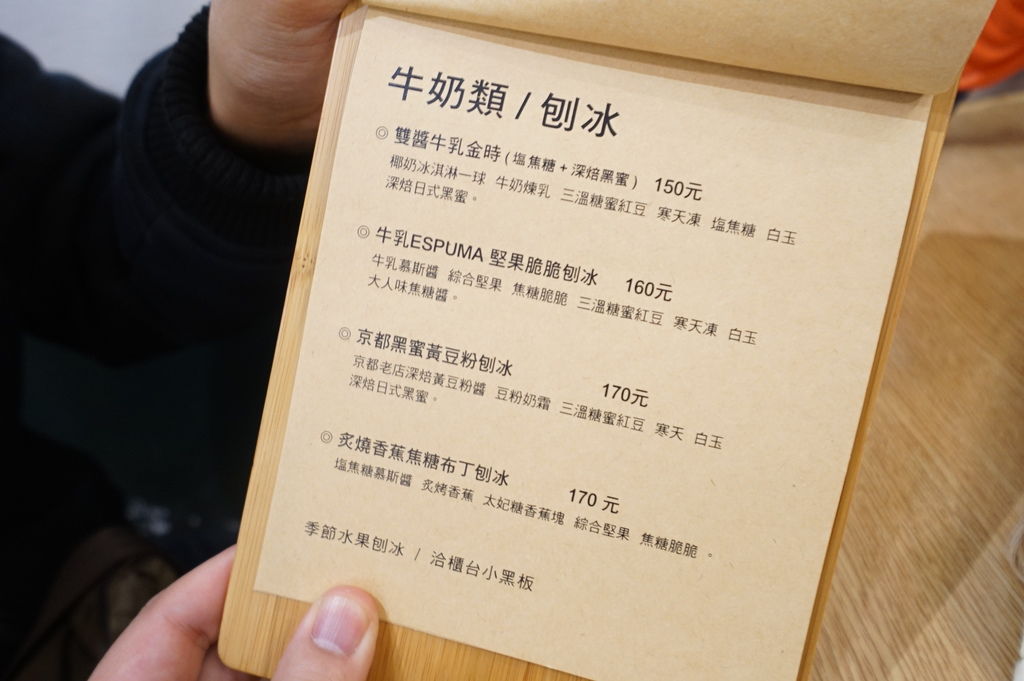 牛奶類 / 刨冰
◎ 雙醬牛乳金時 ( 塩焦糖 + 深焙黑蜜 ) 150元
椰奶冰淇淋一球 牛奶煉乳 三溫糖蜜紅豆 寒天凍 塩焦糖 白玉
深焙日式黑蜜。
◎ 牛乳ESPUMA 堅果脆脆刨冰 160元
牛乳慕斯醬 綜合堅果 焦糖脆脆 三溫糖蜜紅豆 寒天凍 白玉
大人味焦糖醬。
◎ 京都黑蜜黃豆粉刨冰 170元
京都老店深焙黃豆粉醬 豆粉奶霜 三溫糖蜜紅豆 寒天 白玉
深焙日式黑蜜。
◎ 炙燒香蕉焦糖布丁刨冰 170 元
塩焦糖慕斯醬 炙烤香蕉 太妃糖香蕉塊 綜合堅果 焦糖脆脆 。
季節水果刨冰 / 洽櫃台小黑板